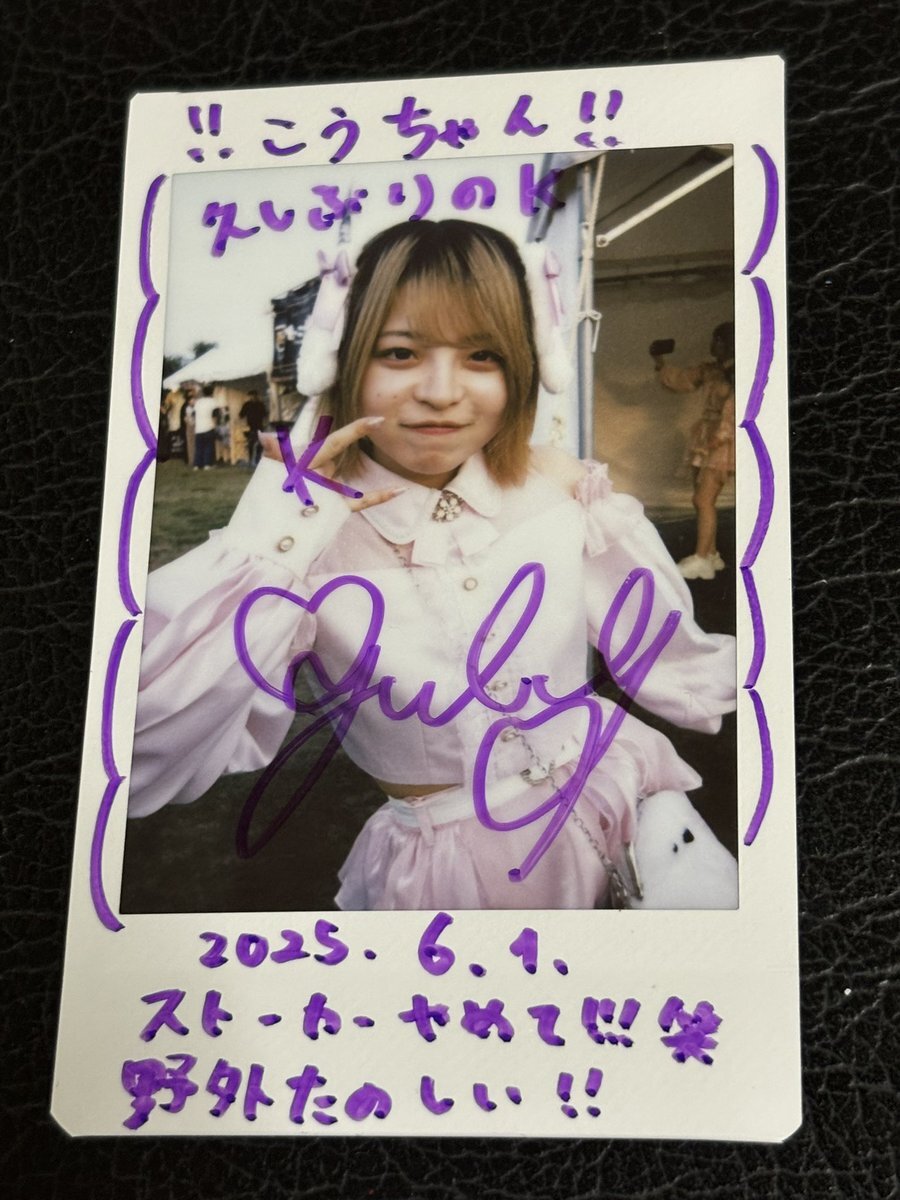 !!こうちゃん!!
久しぶりのK
K
2025.6.1.
ストーカーやめて!!!笑
野外たのしい!!